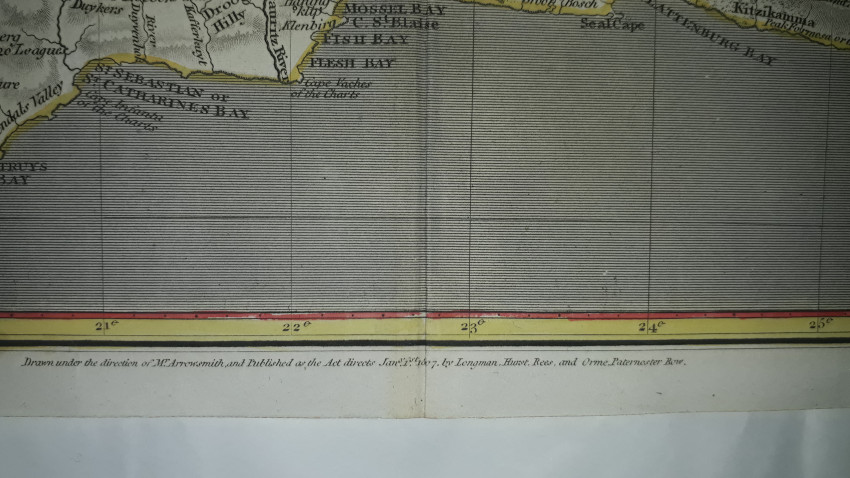 Duykers
River
Hills
Mauritz River
Klenburg
MOSSEL BAY
C. St. Blaise
FISH BAY
FLESH BAY
Cape Vaches
of the Charts
Bosch
Seal Cape
PLATTENBURG BAY
Kitzikamma
Peak Formose or
League
Valley
ST. SEBASTIAN or
ST. CATHARINES BAY
Cape Infanta
of the Charts
STRUYS
BAY
21° 22° 23° 24° 25°
Drawn under the direction of Mr. Arrowsmith, and Published as the Act directs Jany. 1st. 1807, by Longman, Hurst, Rees, and Orme, Paternoster Row.